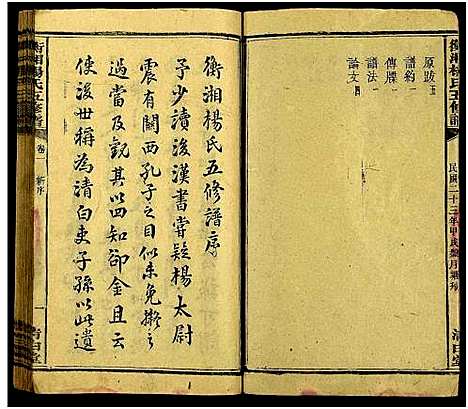 衡湘楊氏五修譜
民國二十三年甲戌
清白堂
原跋五
譜約一
傳牒一
語法一
論文四
衡湘楊氏五修譜序
予少讀後漢書嘗疑楊太尉
震有關西孔子之目似未免擬之
過當及觀其以四知卻金且云
使後世稱為清白吏子孫以此遺
衡湘楊氏五修譜
卷一 新序
一
清白堂